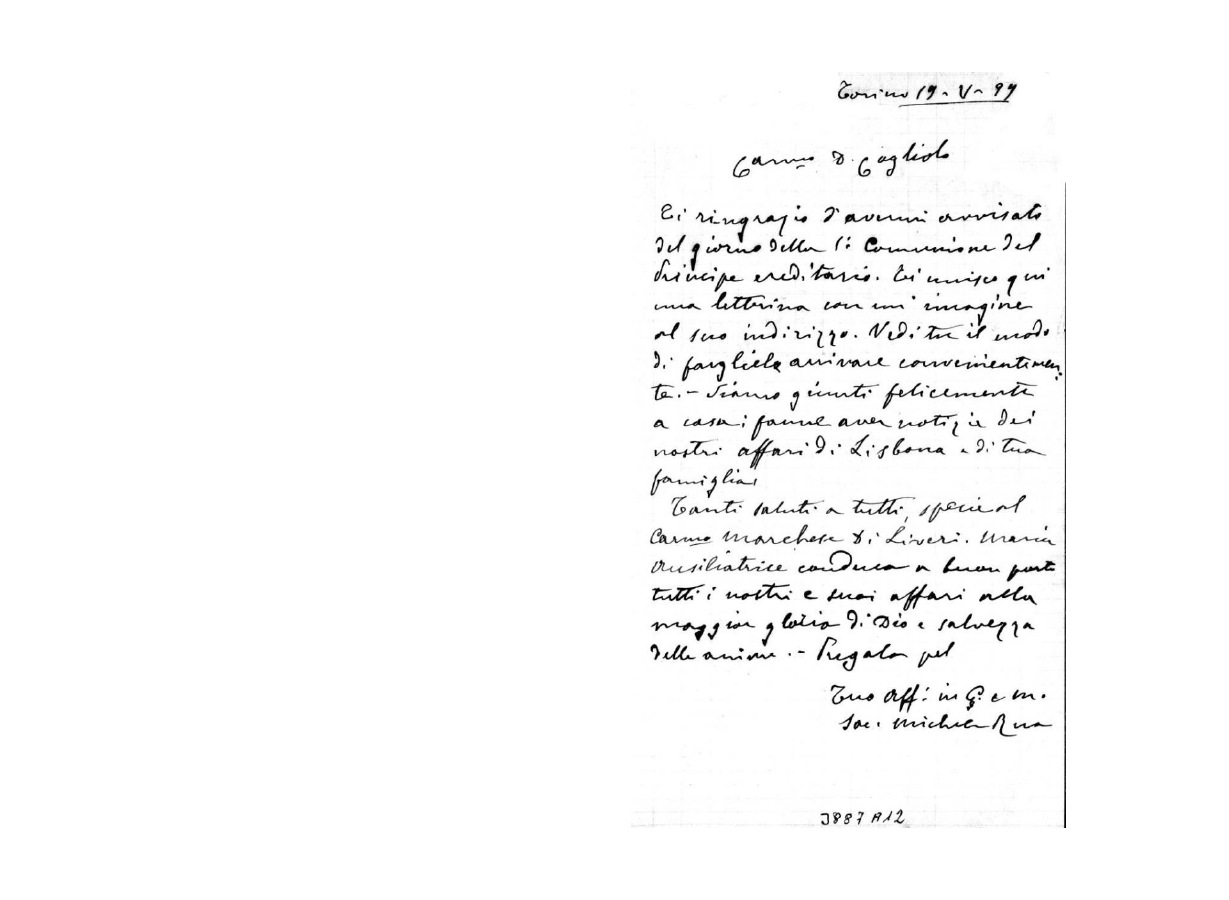 Torino 19-V-99
Carmo D. Cogliolo
Ti ringrazio d'avermi avvisato
del giorno della 1a Comunione del
Principe ereditario. Ti unisco qui
una letterina con un'imagine
al suo indirizzo. Vedi tu il modo
di fargliela arrivare convenientemen-
te. - Siamo giunti felicemente
a casa; fanne aver notizie dei
nostri affari di Lisbona e di tua
famiglia.
Tanti saluti a tutti, specie al
Carmo Marchese di Liveri. Maria
Ausiliatrice conduca a buon porto
tutti i nostri e suoi affari alla
maggior gloria di Dio e salvezza
delle anime. - Prega pel
Tuo aff. in G. e M.
Sac. Michele Rua
3887 A12